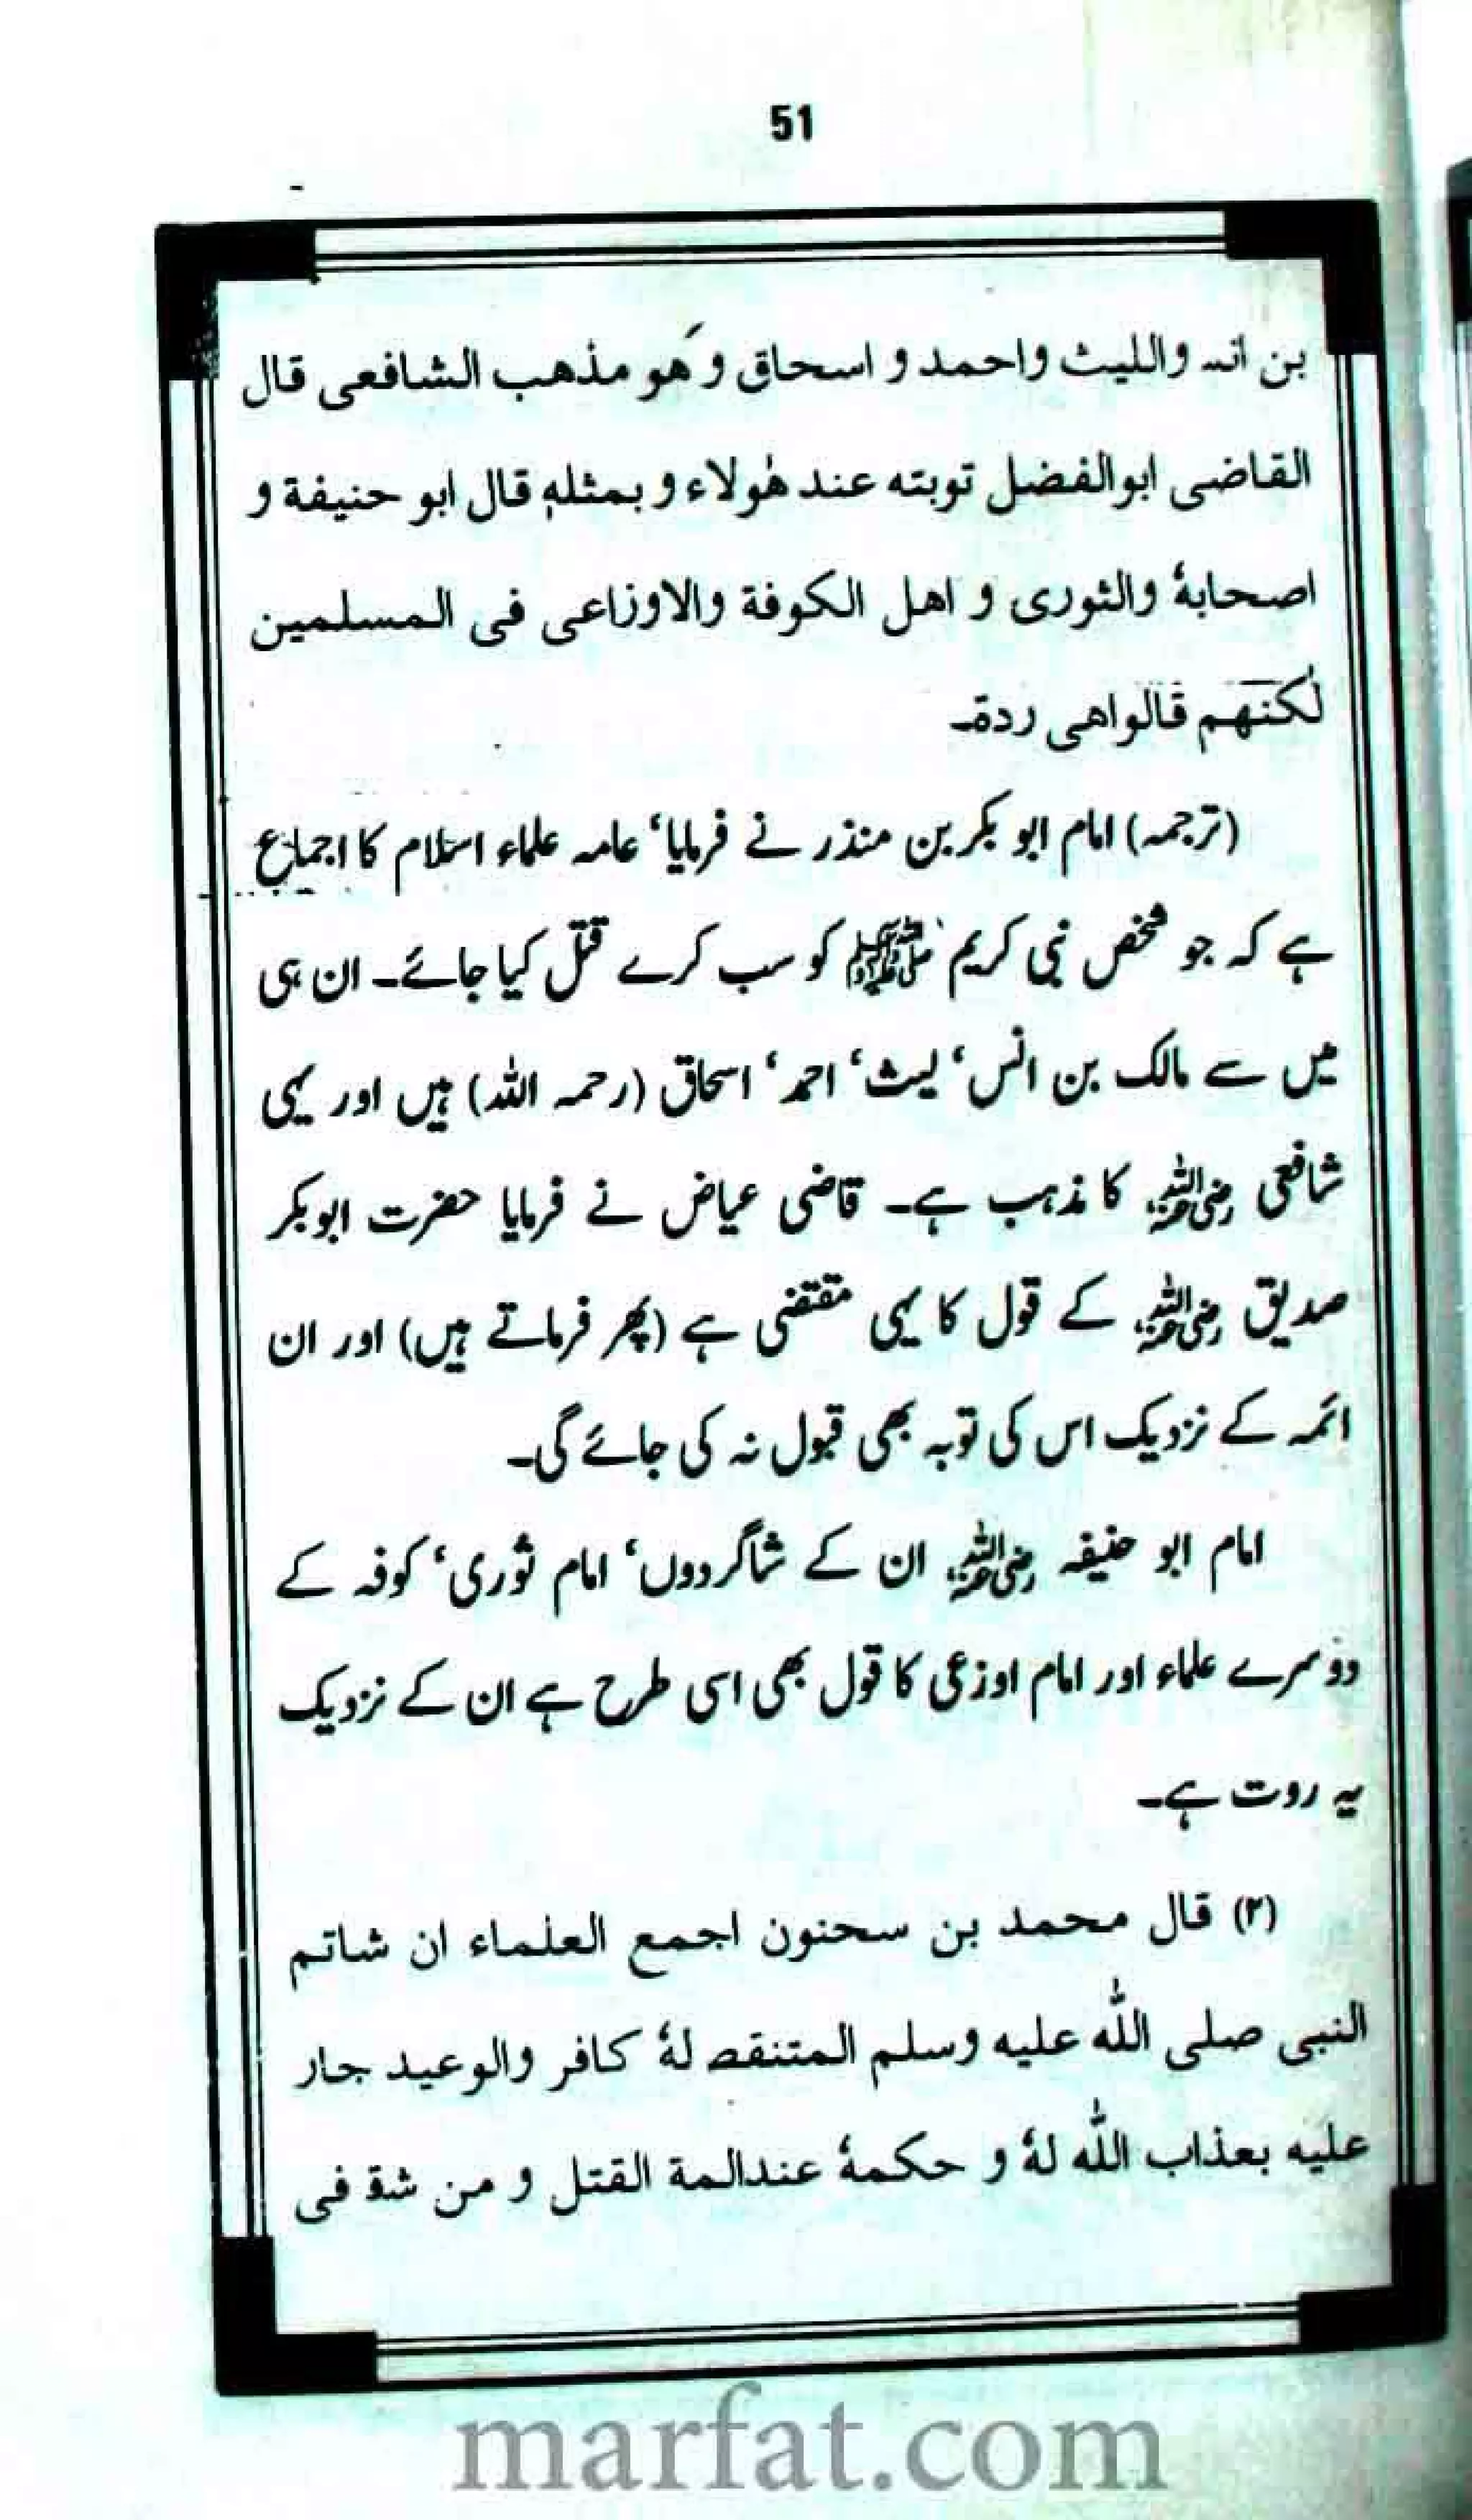 51
بن انس والليث واحمد و اسحاق و هو مذهب الشافعى قال
القاضى ابوالفضل توبته عند هٰولاء و بمثلهٖ قال ابو حنيفة و
اصحابهٗ والثورى و اهل الكوفة والاوزاعى فى المسلمين
لٰكنّهم قالواهى ردة۔
(ترجمہ) امام ابو بکر بن منذر نے فرمایا‘ عامہ علماء اسلام کا اجماع
ہے کہ جو شخص نبی کریم ﷺ کو سب کرے قتل کیا جائے۔ ان ہی
میں سے مالک بن انس‘ لیث‘ احمد‘ اسحاق (رحمہ اللہ) ہیں اور یہی
شافعی رضی اللہ عنہ کا مذہب ہے۔ قاضی عیاض نے فرمایا حضرت ابوبکر
صدیق رضی اللہ عنہ کے قول کا یہی مقتضی ہے (پھر فرماتے ہیں) اور ان
ائمہ کے نزدیک اس کی توبہ بھی قبول نہ کی جائے گی۔
امام ابو حنیفہ رضی اللہ عنہ ان کے شاگردوں‘ امام ثوری‘ کوفہ کے
دوسرے علماء اور امام اوزعی کا قول بھی اسی طرح ہے ان کے نزدیک
یہ روت ہے۔
(۲) قال محمد بن سحنون اجمع العلماء ان شاتم
النبى صلى اللّٰه عليه وسلم المتنقصـ لهٗ كافر والوعيد جار
عليه بعذاب اللّٰه لهٗ و حكمهٗ عندالمة القتل و من شقـ فى
marfat.com